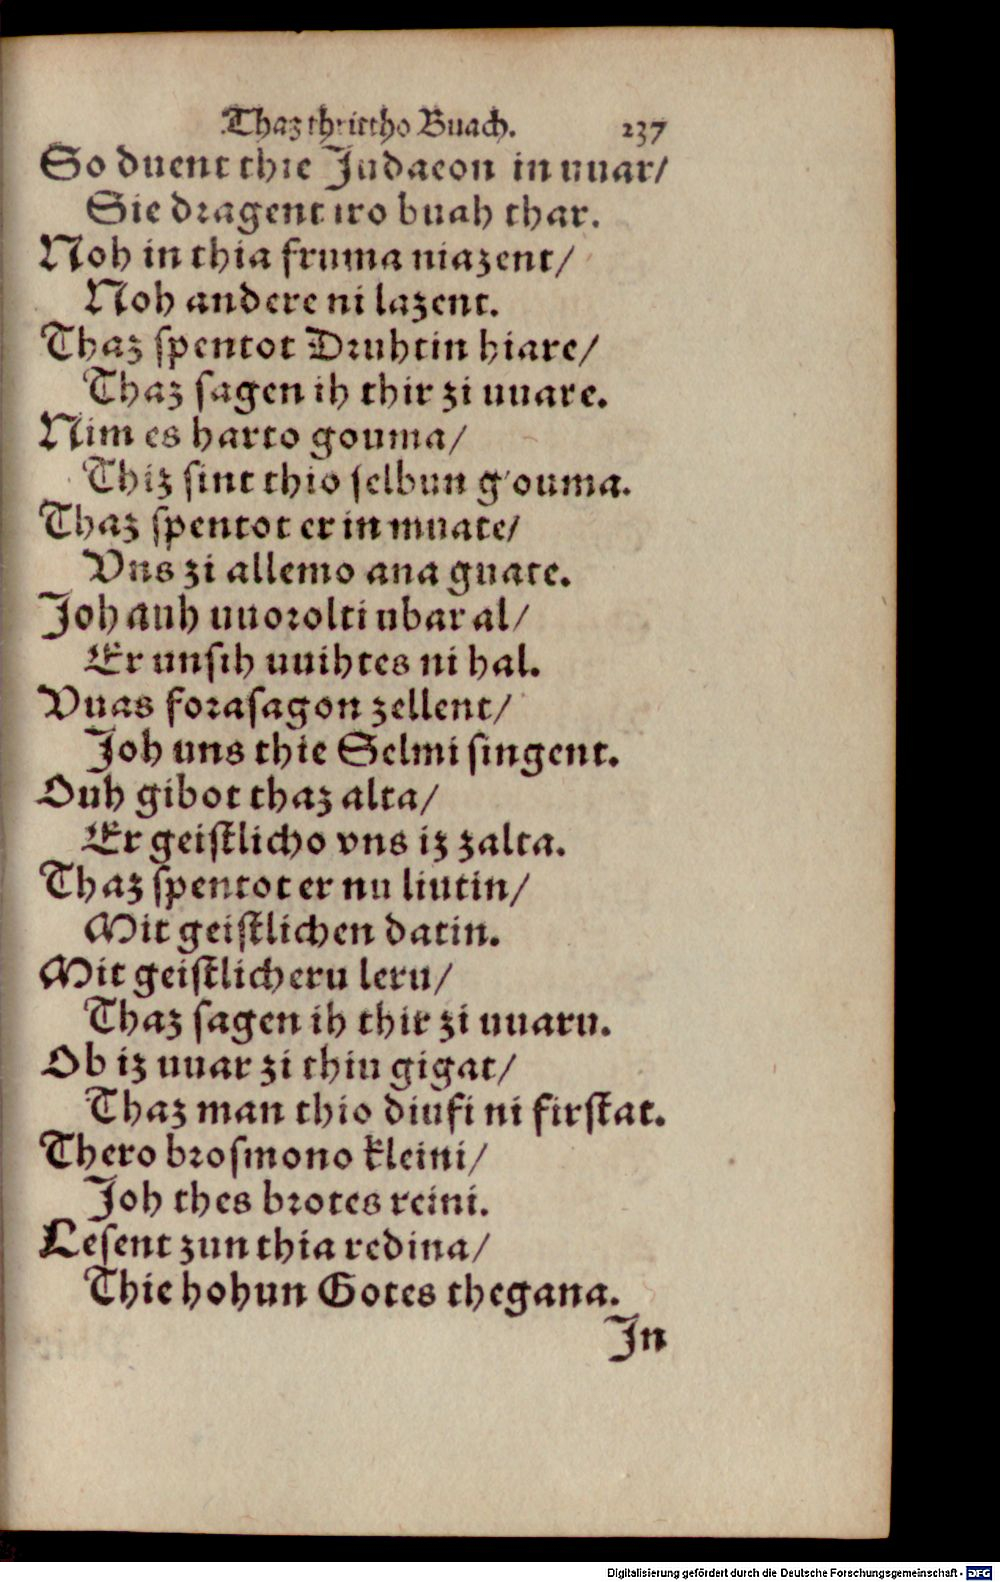 Thaz thrittho Buach. 237
So duent thie Judaeon in uuar/
Sie dragent iro buah thar.
Noh in thia fruma niazent/
Noh andere ni lazent.
Thaz spentot Druhtin hiare/
Thaz sagen ih thir zi uuare.
Nim es harto gouma/
Thiz sint thio selbun g'ouma.
Thaz spentot er in muate/
Vns zi allemo ana guate.
Joh auh uuorolti ubar al/
Er unsih uuihtes ni hal.
Vuas forasagon zellent/
Joh uns thie Selmi singent.
Ouh gibot thaz alta/
Er geistlicho vns iz zalta.
Thaz spentot er nu liutin/
Mit geistlichen datin.
Mit geistlicheru leru/
Thaz sagen ih thir zi uuaru.
Ob iz uuar zi thiu gigat/
Thaz man thio diufi ni firstat.
Thero brosmono kleini/
Joh thes brotes reini.
Lesent zun thia redina/
Thie hohun Gotes thegana.
Jn
Digitalisierung gefördert durch die Deutsche Forschungsgemeinschaft - DFG